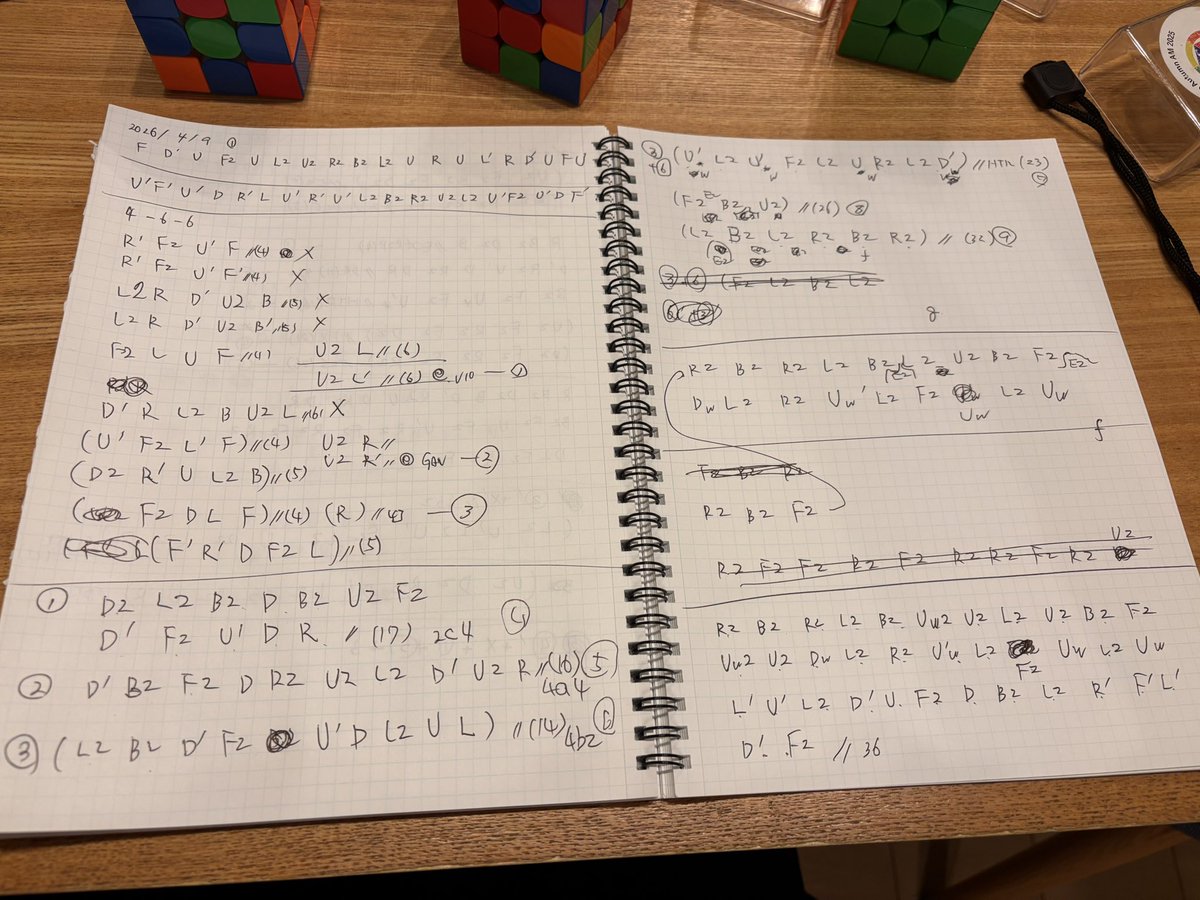 2026/4/9 ①
F D' U F2 U L2 U2 R2 B2 L2 U R U L' R D' U F U'
U' F' U' D R' L U' R' U' L2 B2 R2 U2 L2 U' F2 U' D F'
4-6-6
R' F2 U' F //(4) X
R' F2 U' F' //(4) X
L2 R D' U2 B //(5) X
L2 R D' U2 B' //(5) X
F2 L U F //(4) U2 L //(6)
U2 L' //(6) - ①
D' R L2 B U2 L //(6) X
(U' F2 L' F) //(4) U2 R //
(D2 R' U L2 B) //(5) U2 R' // - ②
( F2 D L F) //(4) (R) // - ③
(F' R' D F2 L) //(5)
① D2 L2 B2 D B2 U2 F2
D' F2 U' D R //(17) 2c4 ④
② D' B2 F2 D R2 U2 L2 D' U2 R //(16) 4a4 ⑤
③ (L2 B2 D' F2 U' D L2 U L) //(14) 4b2 ⑥
③+⑥ (U' L2 U' F2 L2 U R2 L2 D') // HTR (23)
w w w
(F2 B2 U2) //(26) ⑧
E2
(L2 B2 L2 R2 B2 R2) //(32) ⑨
E2 f
R2 B2 R2 L2 B2 L2 U2 B2 F2 E2
[E2]
Dw L2 R2 Uw' L2 F2 L2 Uw
Uw
f
R2 B2 F2
U2
R2 B2 R2 L2 B2 Uw2 U2 L2 U2 B2 F2
Uw2 U2 Dw L2 R2 U'w L2 Uw L2 Uw
F2
L' U' L2 D' U F2 D B2 L2 R' F' L'
D' F2 // 36
Autumn AM 2025